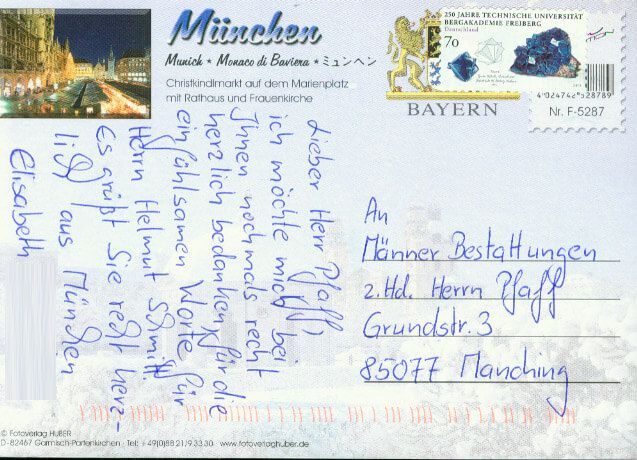 München
Munich ★ Monaco di Baviera ★ ミュンヘン
Christkindlmarkt auf dem Marienplatz
mit Rathaus und Frauenkirche
BAYERN
250 JAHRE TECHNISCHE UNIVERSITÄT
BERGAKADEMIE FREIBERG
Deutschland
70
4 024742 528789
Nr. F-5287
Lieber Herr Pfaff,
ich möchte mich bei
Ihnen nochmals recht
herzlich bedanken für die
einfühlsamen Worte für
Herrn Helmut Schmitt.
Es grüßt Sie recht herz-
lig aus München
Elisabeth
An
Männer Bestattungen
z.Hd. Herrn Pfaff
Grundstr. 3
85077 Manching
© Fotoverlag HUBER
D-82467 Garmisch-Partenkirchen · Tel: +49(0)88 21/9 33 30 · www.fotoverlaghuber.de